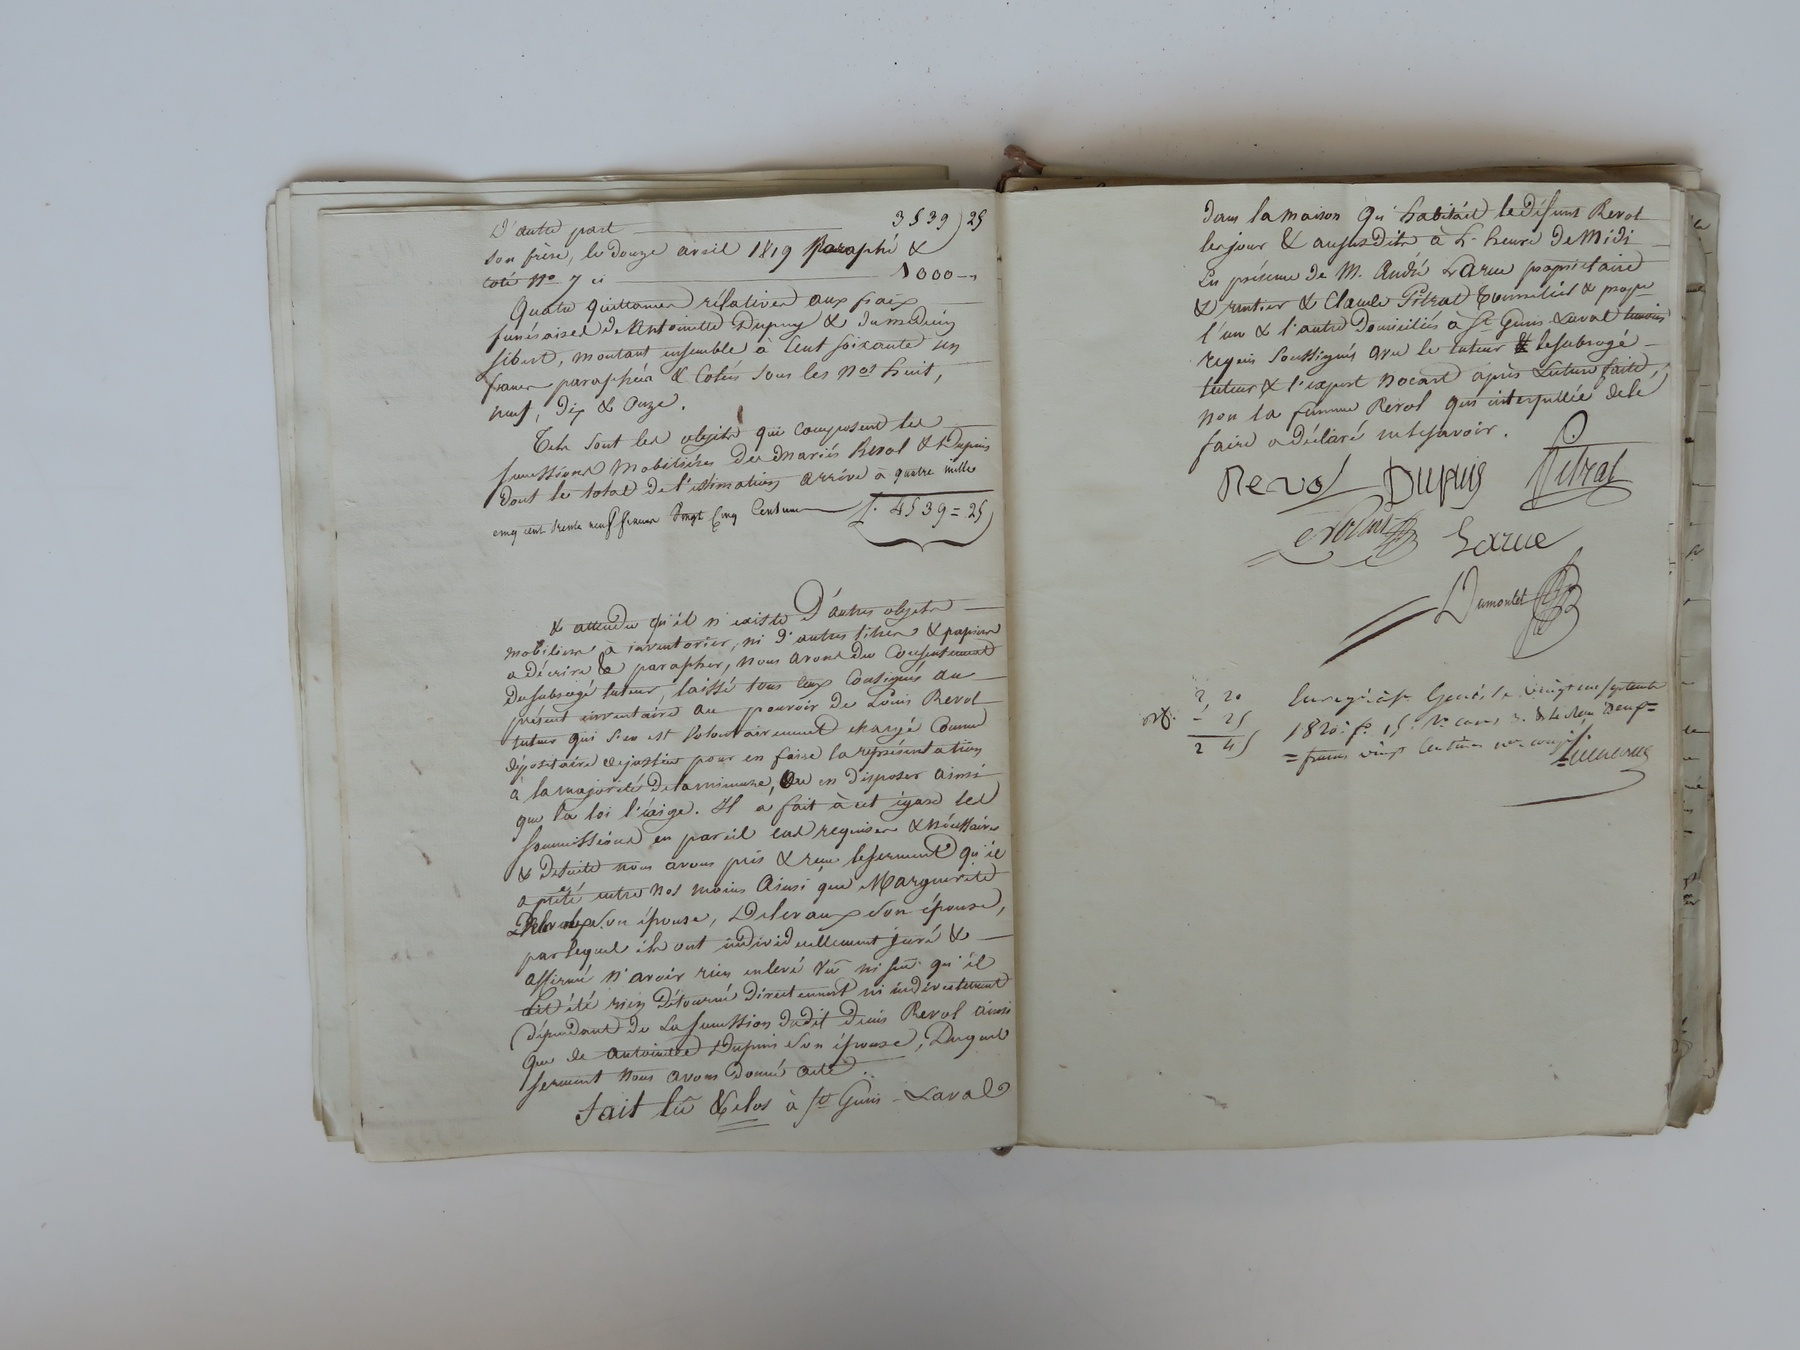 D'autre part 3539,25
son frère, le douze avril 1819 Paraphé &
coté No 7 ci 1000 -"
Quatre quittances rélatives aux fraix
funéraires de Antoinette Dupuy & du médecin
fibert, montant ensemble à Cent soixante un
francs paraphées & Cotées sous les Nos huit,
neuf, dix & Onze.
Tels sont les objets qui composent les
successions Mobiliéres des mariés Revol & Dupuis
dont le total de l'estimation arrive à quatre mille
cinq cent trente neuf francs Vingt Cinq Centimes f. 4539=25
& attendu qu'il n'existe D'autres objets
mobiliers à inventorier, ni d'autres titres & papiers
a décrire & parapher, nous avons du Consentement
du subrogé tuteur, laissé tous ceux Consignés au
présent inventaire au pouvoir de Louis Revol
tuteur qui s'en est Volontairement chargé Comme
dépositaire de justice pour en faire la représentation
à la majorité de la mineure, Ou en Disposer ainsi
que la loi l'éxige. Il a fait à cet égard les
soumissions en pareil cas requises & nécessaires
& de suite nous avons pris & reçu le serment qu'il
a prêté entre nos mains Ainsi que Marguerite
son épouse, Delevaux son épouse,
par lequel ils ont individuellement juré &
affirmé N'avoir rien enlevé Vu ni su qu'il
ait été rien Détourné directement ni indirectement
dépendant de La succession dudit Denis Revol ainsi
que de antoinette Dupuis son épouse, Duquel
serment nous avons donné acte.
Fait lu & clos à St Genis-Laval
dans la maison qu'habitait le défunt Revol
les jour & an susdits à L'heure de Midi
En présence de M. André Larue propriétaire
& rentier & Claude Pitrat Tonnelier & propre
l'un & l'autre Domiciliés à St Genis-Laval témoins
requis soussignés avec le tuteur & le subrogé
tuteur & l'expert Nocard après Lecture faite,
non la femme Revol qui interpellée de le
faire a déclaré ne le savoir.
Revol Dupuis Pitrat
Larue
Dumoulet
2 20
- 25
2 45
Enregistré Genis le vingt un septembre
1820. fo 15 Ro cases 3. & Reçu Deux
francs vingt Centimes